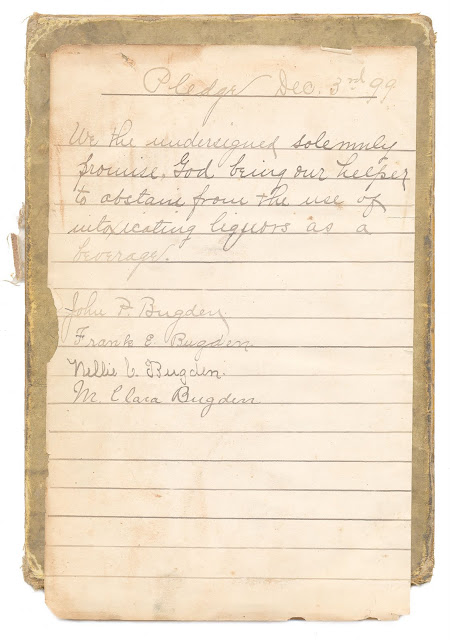 Pledge Dec. 3rd 99
We the undersigned solemnly
promise, God being our helper
to abstain from the use of
intoxicating liquors as a
beverage.
John P. Bugden
Frank E. Bugden.
Nellie V. Bugden.
M. Clara Bugden